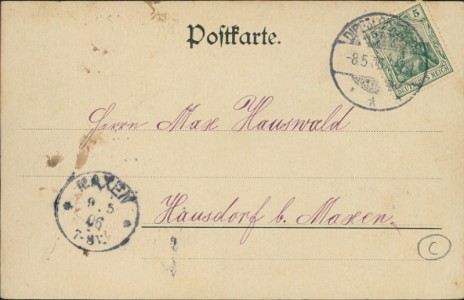 Postkarte.
5
DEUTSCHES REICH
-8.5.
Herrn Max Hauswald
MAXEN
9 5
06
7-8V.
Hausdorf b. Maxen.
C